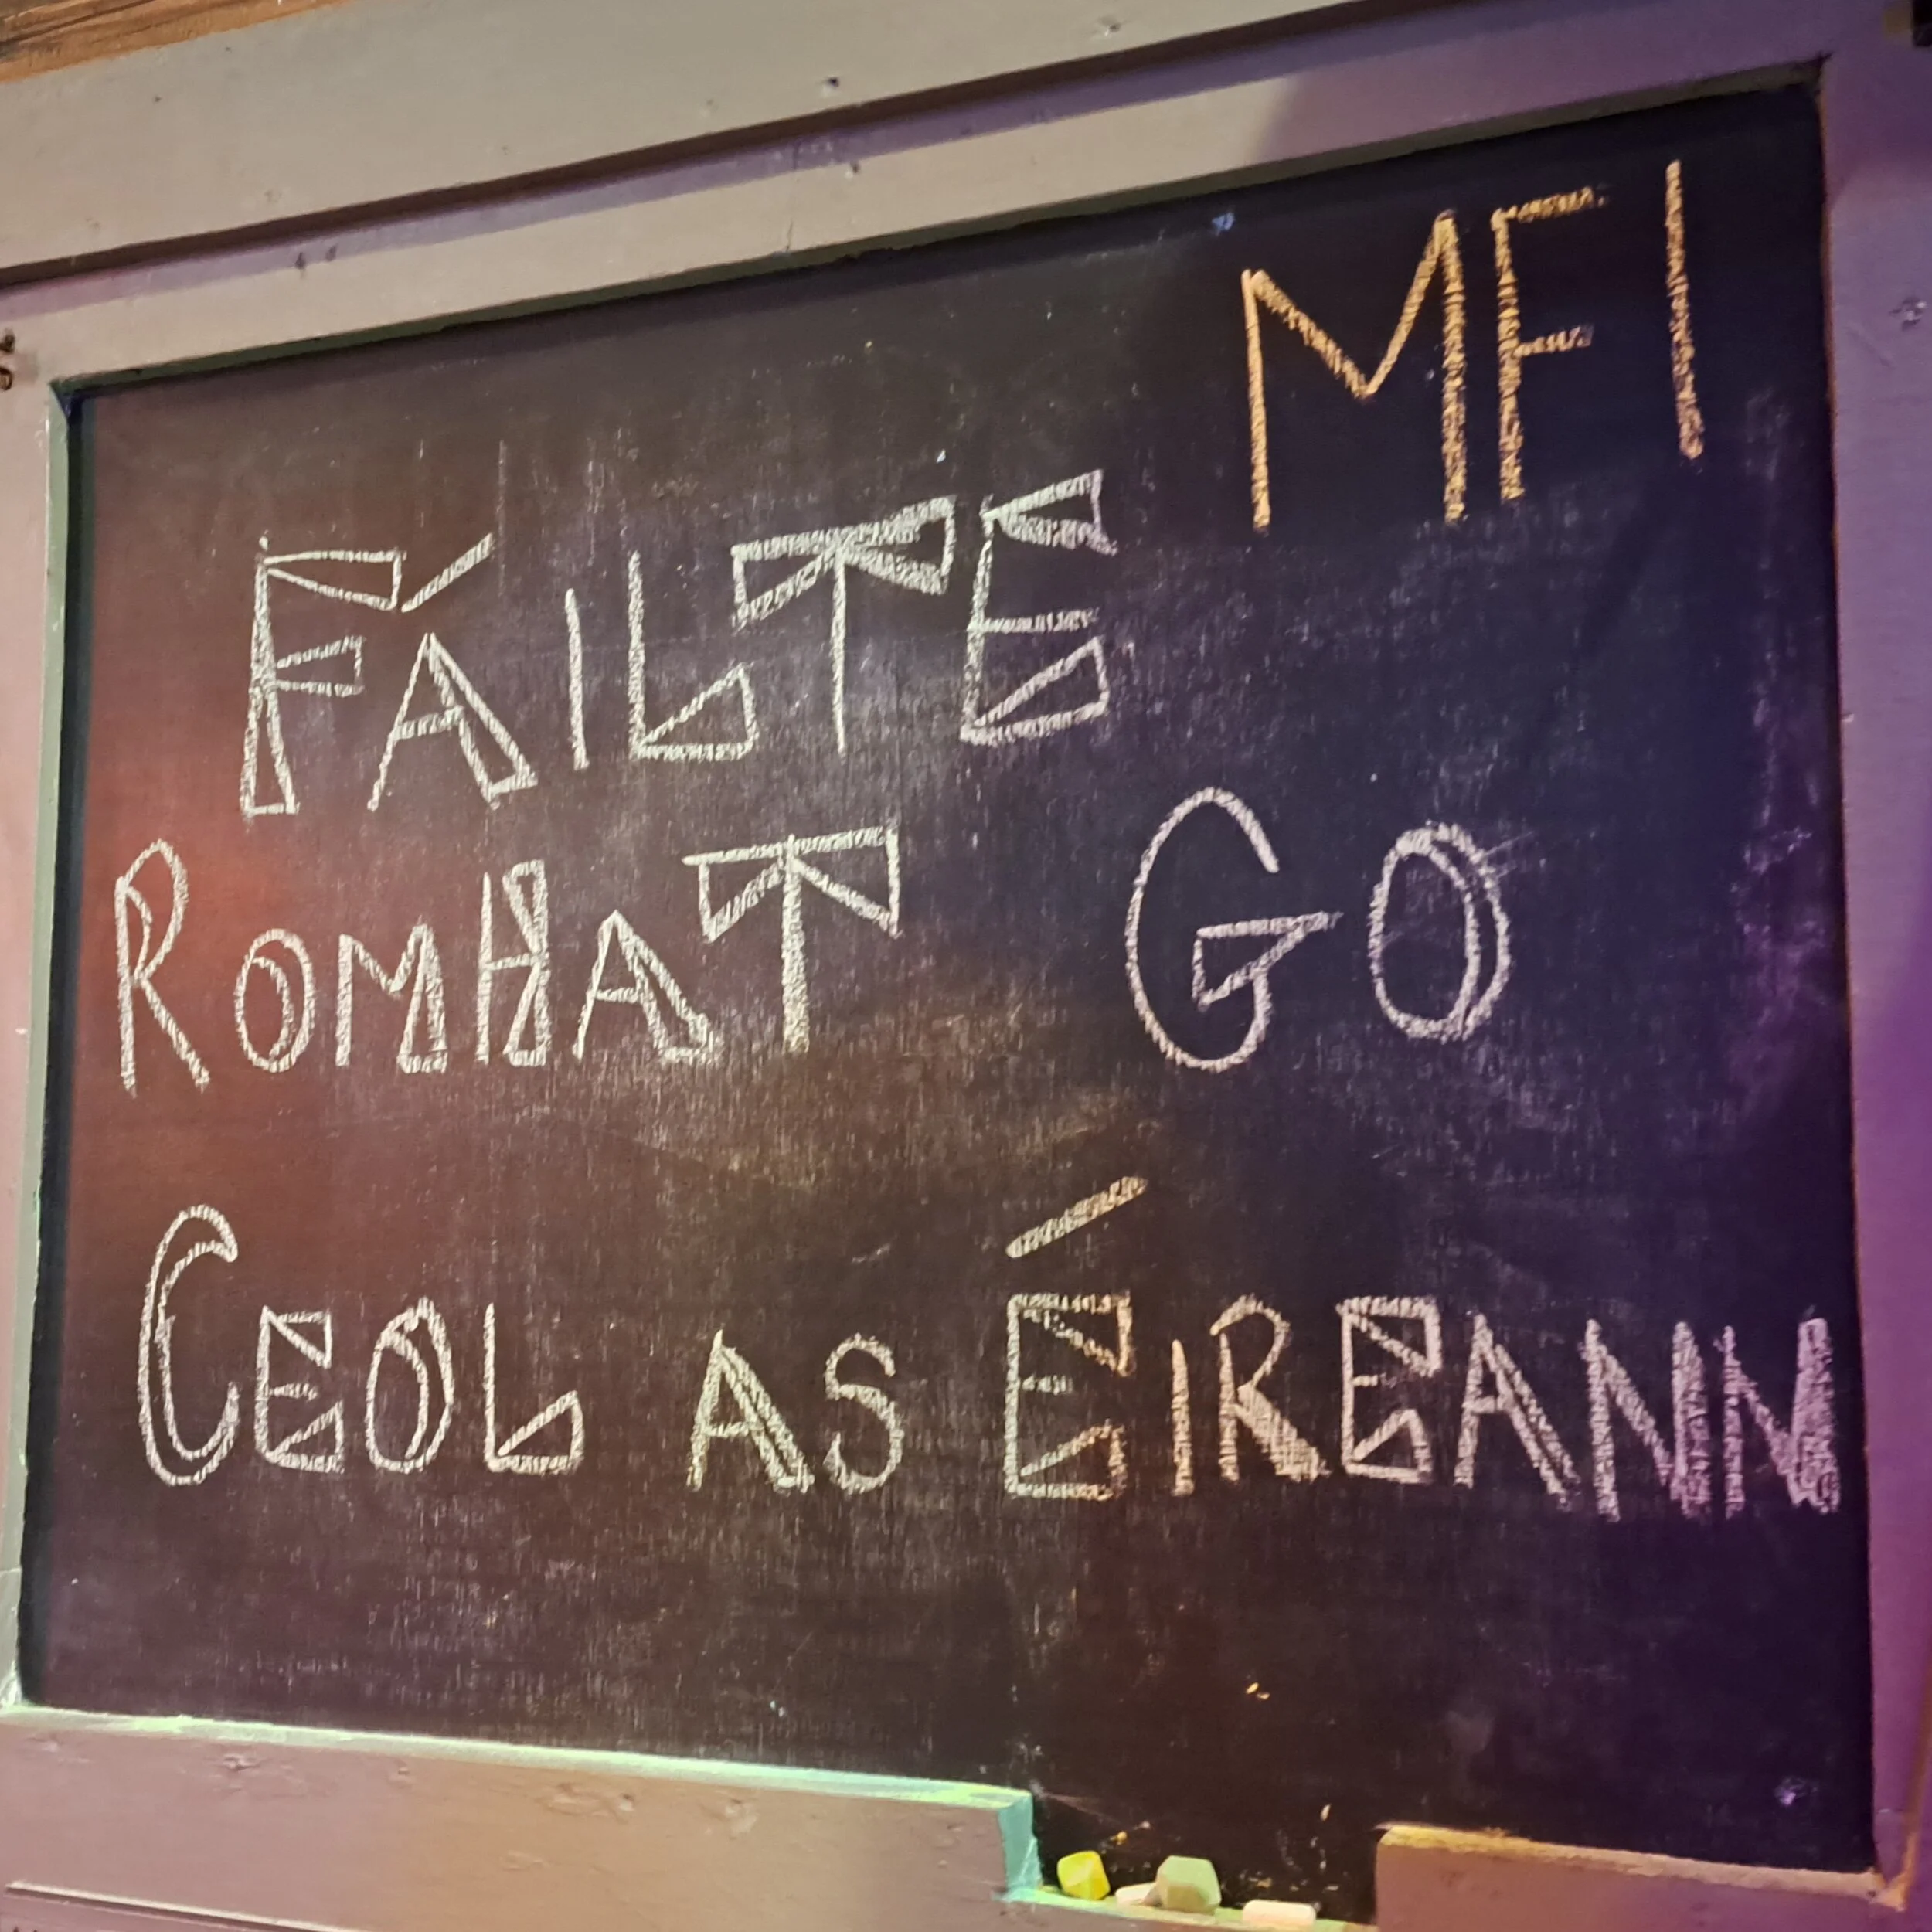 MFI
FÁILTE
ROMHAT GO
CEOL AS ÉIREANN